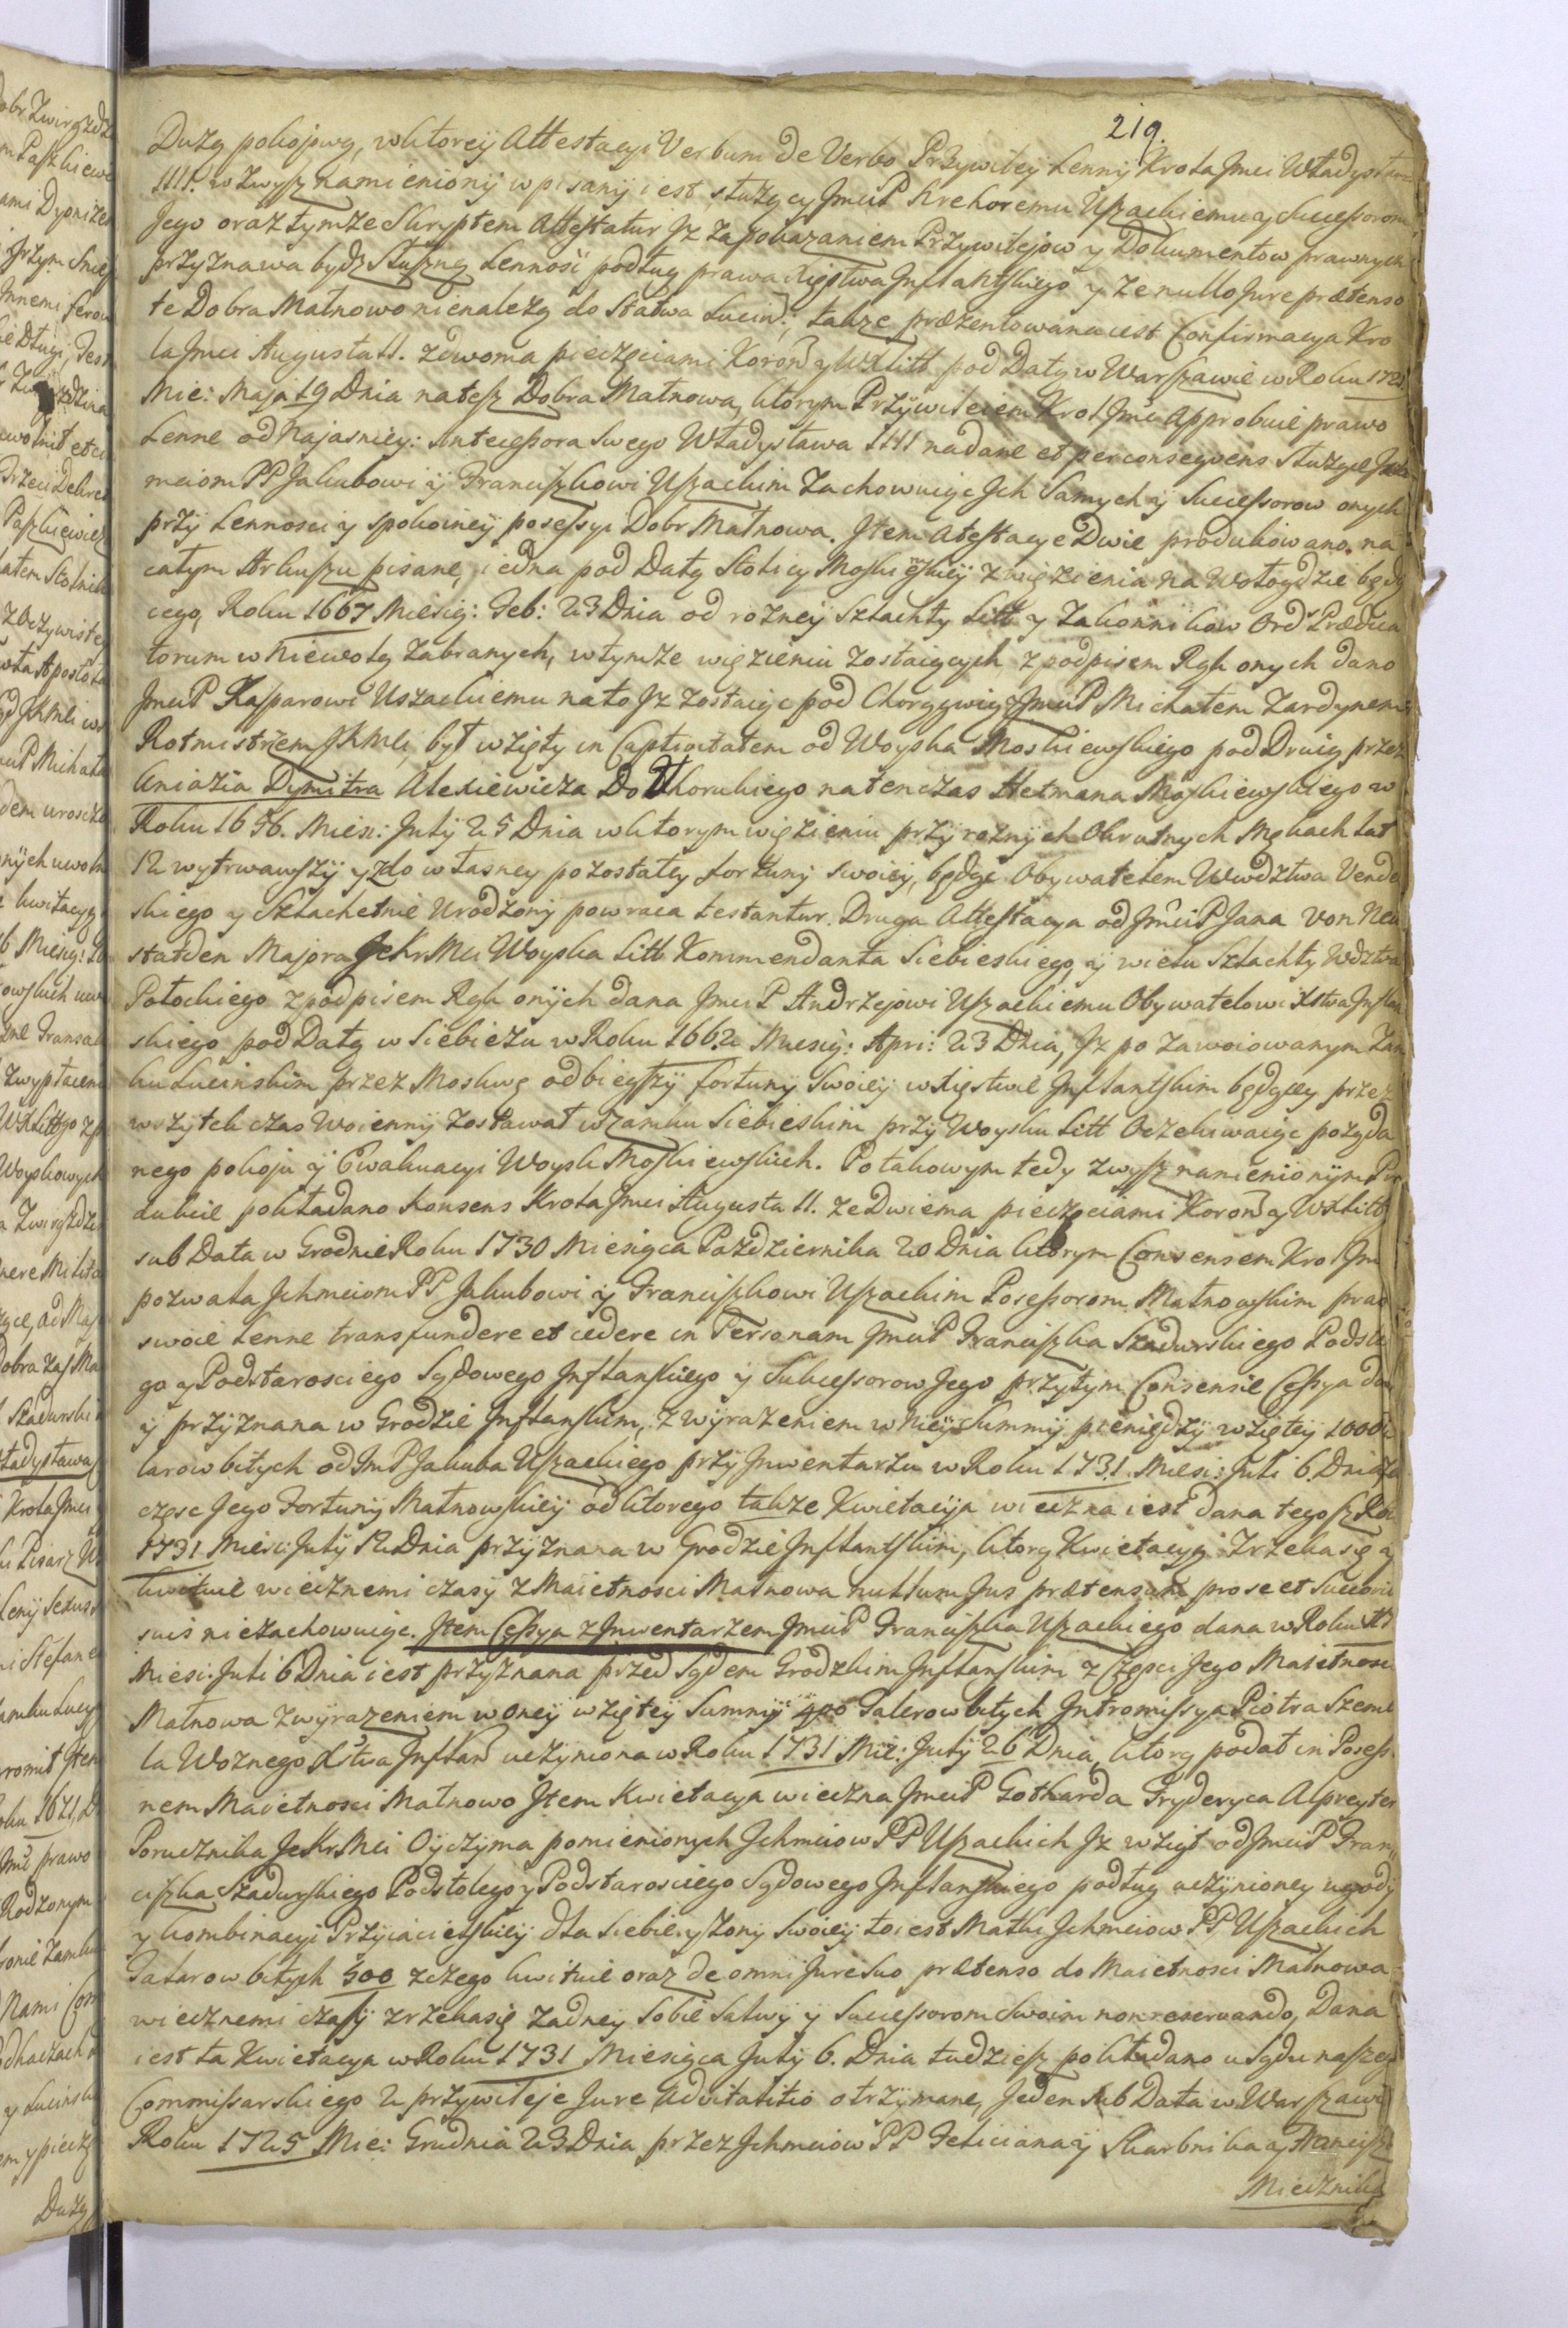 219.
Dużą pokojową, w ktorey Attestacyi Verbum de Verbo Przywiley Lenny Krola Jmci Władysława
IIII. w zwysz namienioniy wpisany iest, służący JmciP Krehoremu Uszackiemu y Successorom
Jego oraz tymże Skryptem Attestatur Jż za pokazaniem Przywilejow y Dokumentow prawnych
przyznawa bydź słuszną Lenność podług prawa Xięstwa Inflantskiego y że nullo Jure prætenso
te Dobra Małnowo nie należą do Starwa Lucin: także prezentowana iest Confirmacya Kro
la Jmci Augusta II. z dwoma pieczęciami Koron y WXLitt pod Datą w Warszawie w Roku 172
Mie: Maja 19 Dnia na tesz Dobra Małnowa, ktorym Przywileiem Krol Jmć Approbuie prawo
Lenne od Najasniey: Antecessora Swego Władysława IIII nadane et per conseqvens służące Jch
mciom PP Jakubowi y Franciszkowi Uszackim Zachowuiąc Jch Samych y Successorow onych
przy Lennosci y spokoiney possessyi Dobr Małnowa. Jtem Atestacye Dwie produkowano na
całym Arkuszu pisane, iedna pod Datą Stolicy Moskieyskiey z więzienia na Wołogdzie będą
cego, Roku 1667 Miesią: Feb: 23 Dnia od rozney Szlachty Litt y Zakonnikow Ord Prædica
torum w niewolą zabranych, w tymże więzieniu zostaiących z podpisem Rąk onych dano
JmciP Kasparowi Uszackiemu na to Jż zostaiąc pod Chorągwią JmciP Michałem Zardynem
Rotmistrzem JKMci, był wzięty in Captivitatem od Woyska Moskiewskiego pod Drują przez
Kniazia Dymitra Alexiewicza Dolhorukiego natenczas Hetmana Moskiewskiego w
Roku 1656. Miesi: July 25 Dnia w ktorym więzieniu przy roznych Okrutnych Mękach lat
12 wytrwawszy y do własney pozostałey fortuny swoiey, będąc Obywatelem Wwdztwa Vende
skiego y Szlachetnie Urodzony powraca testantur. Druga Attestacya od JmciP Jana von Neu
stadden Majora JeKrMci Woyska Litt Kommendanta Siebieskiego, y wielu Szlachty Wdztwa
Połockiego z podpisem Rąk onych dana JmciP Andrzejowi Uszackiemu Obywatelowi Xstwa Inflan
skiego pod Datą w Siebieżu w Roku 1662 Miesią: Apri: 23 Dnia, Jż po zawoiowanym Zam
ku Lucinskim przez Moskwę odbiegszy fortuny Swoiey w Xięstwie Inflantskim będącey przez
wszytek czas Woienny zostawał w zamku Siebieskim przy Woysku Litt Oczekiwaiąc pożąda
nego pokoju y Ewakuacyi Woysk Moskiewskich. Po takowym tedy zwysz namienionym Pro
dukcie pokładano Konsens Krola Jmci Augusta II. ze Dwiema pieczęciami Koron y WXLitt
sub Data w Grodnie Roku 1730 Miesiąca Pazdziernika 20 Dnia ktorym Consensem Krol Jm
pozwala Jchmciom PP Jakubowi y Franciszkowi Uszackim Possessorom Małnowskim prawo
swoie Lenne transfundere et cedere in Personam JmciP Franciszka Szadurskiego Podsto
go y Podstarosciego Sądowego Inflanskiego y Sukcessorow Jego przy tym Consensie Cessya da
y przyznana w Grodzie Inflanskim, z wyrażeniem w niey Summy pieniędzy wziętey 1000
larow bitych od ImP Jakuba Uszackiego przy Inwentarzu w Roku 1731. Miesi: Juli 6. Dnia za
częsc Jego Fortuny Małnowskiey od ktorego także Kwietacyja wieczna iest dana tegosz Ro
1731 Miesi: July 12 Dnia przyznana w Grodzie Inflantskim, ktorą Kwietacyą Zrzeka się y
kwituie wiecznemi czasy z Maietnosci Małnowa nullum Jus prætensum pro se et Succes
suis nie zachowuiąc. Jtem Cessya z Inwentarzem JmciP Franciszka Uszackiego dana w Roku
Miesi: Juli 6 Dnia iest przyznana przed Sądem Grodzkim Inflanskim z Częsci Jego Maietnosci
Małnowa z wyrażeniem w oney wziętey Summy 400 Talerow bitych Intromissya Piotra Szem
la Woznego Xstwa Inflan uczyniona w Roku 1731 Mie: July 26 Dnia, ktory podał in Possess
nem Maietnosci Małnowo Jtem Kwietacya wieczna JmciP Gotharda Fryderyca Alpreyter
Porucznika JeKrMci Oyczyma pomienionych Jchmciow PP Uszackich Jż wziął od JmciP Fran
ciszka Szadurskiego Podstolego y Podstarosciego Sądowego Inflanskiego podług uczynioney ugody
y kombinacyi Przyiacielskiey dla siebie y żony Swoiey to iest Matki Jchmciow PP Uszackich
Talarow bitych 500 z czego kwituie oraz de omni Jure suo prætenso do Maietnosci Małnowa
wiecznemi czasy zrzeka się żadney Sobie Salwy y Successorom Swoim non reservando, Dana
iest ta Kwietacya w Roku 1731 Miesiąca July 6. Dnia tudziesz pokładano u Sądu naszego
Commissarskiego 2 przywileje Jure Advitalitio otrzymane, Jeden Sub Data w Warszawie
Roku 1725 Mie: Grudnia 23 Dnia przez Jchmciow PP Feliciana y Skarbnika y Francisz
Miecznika